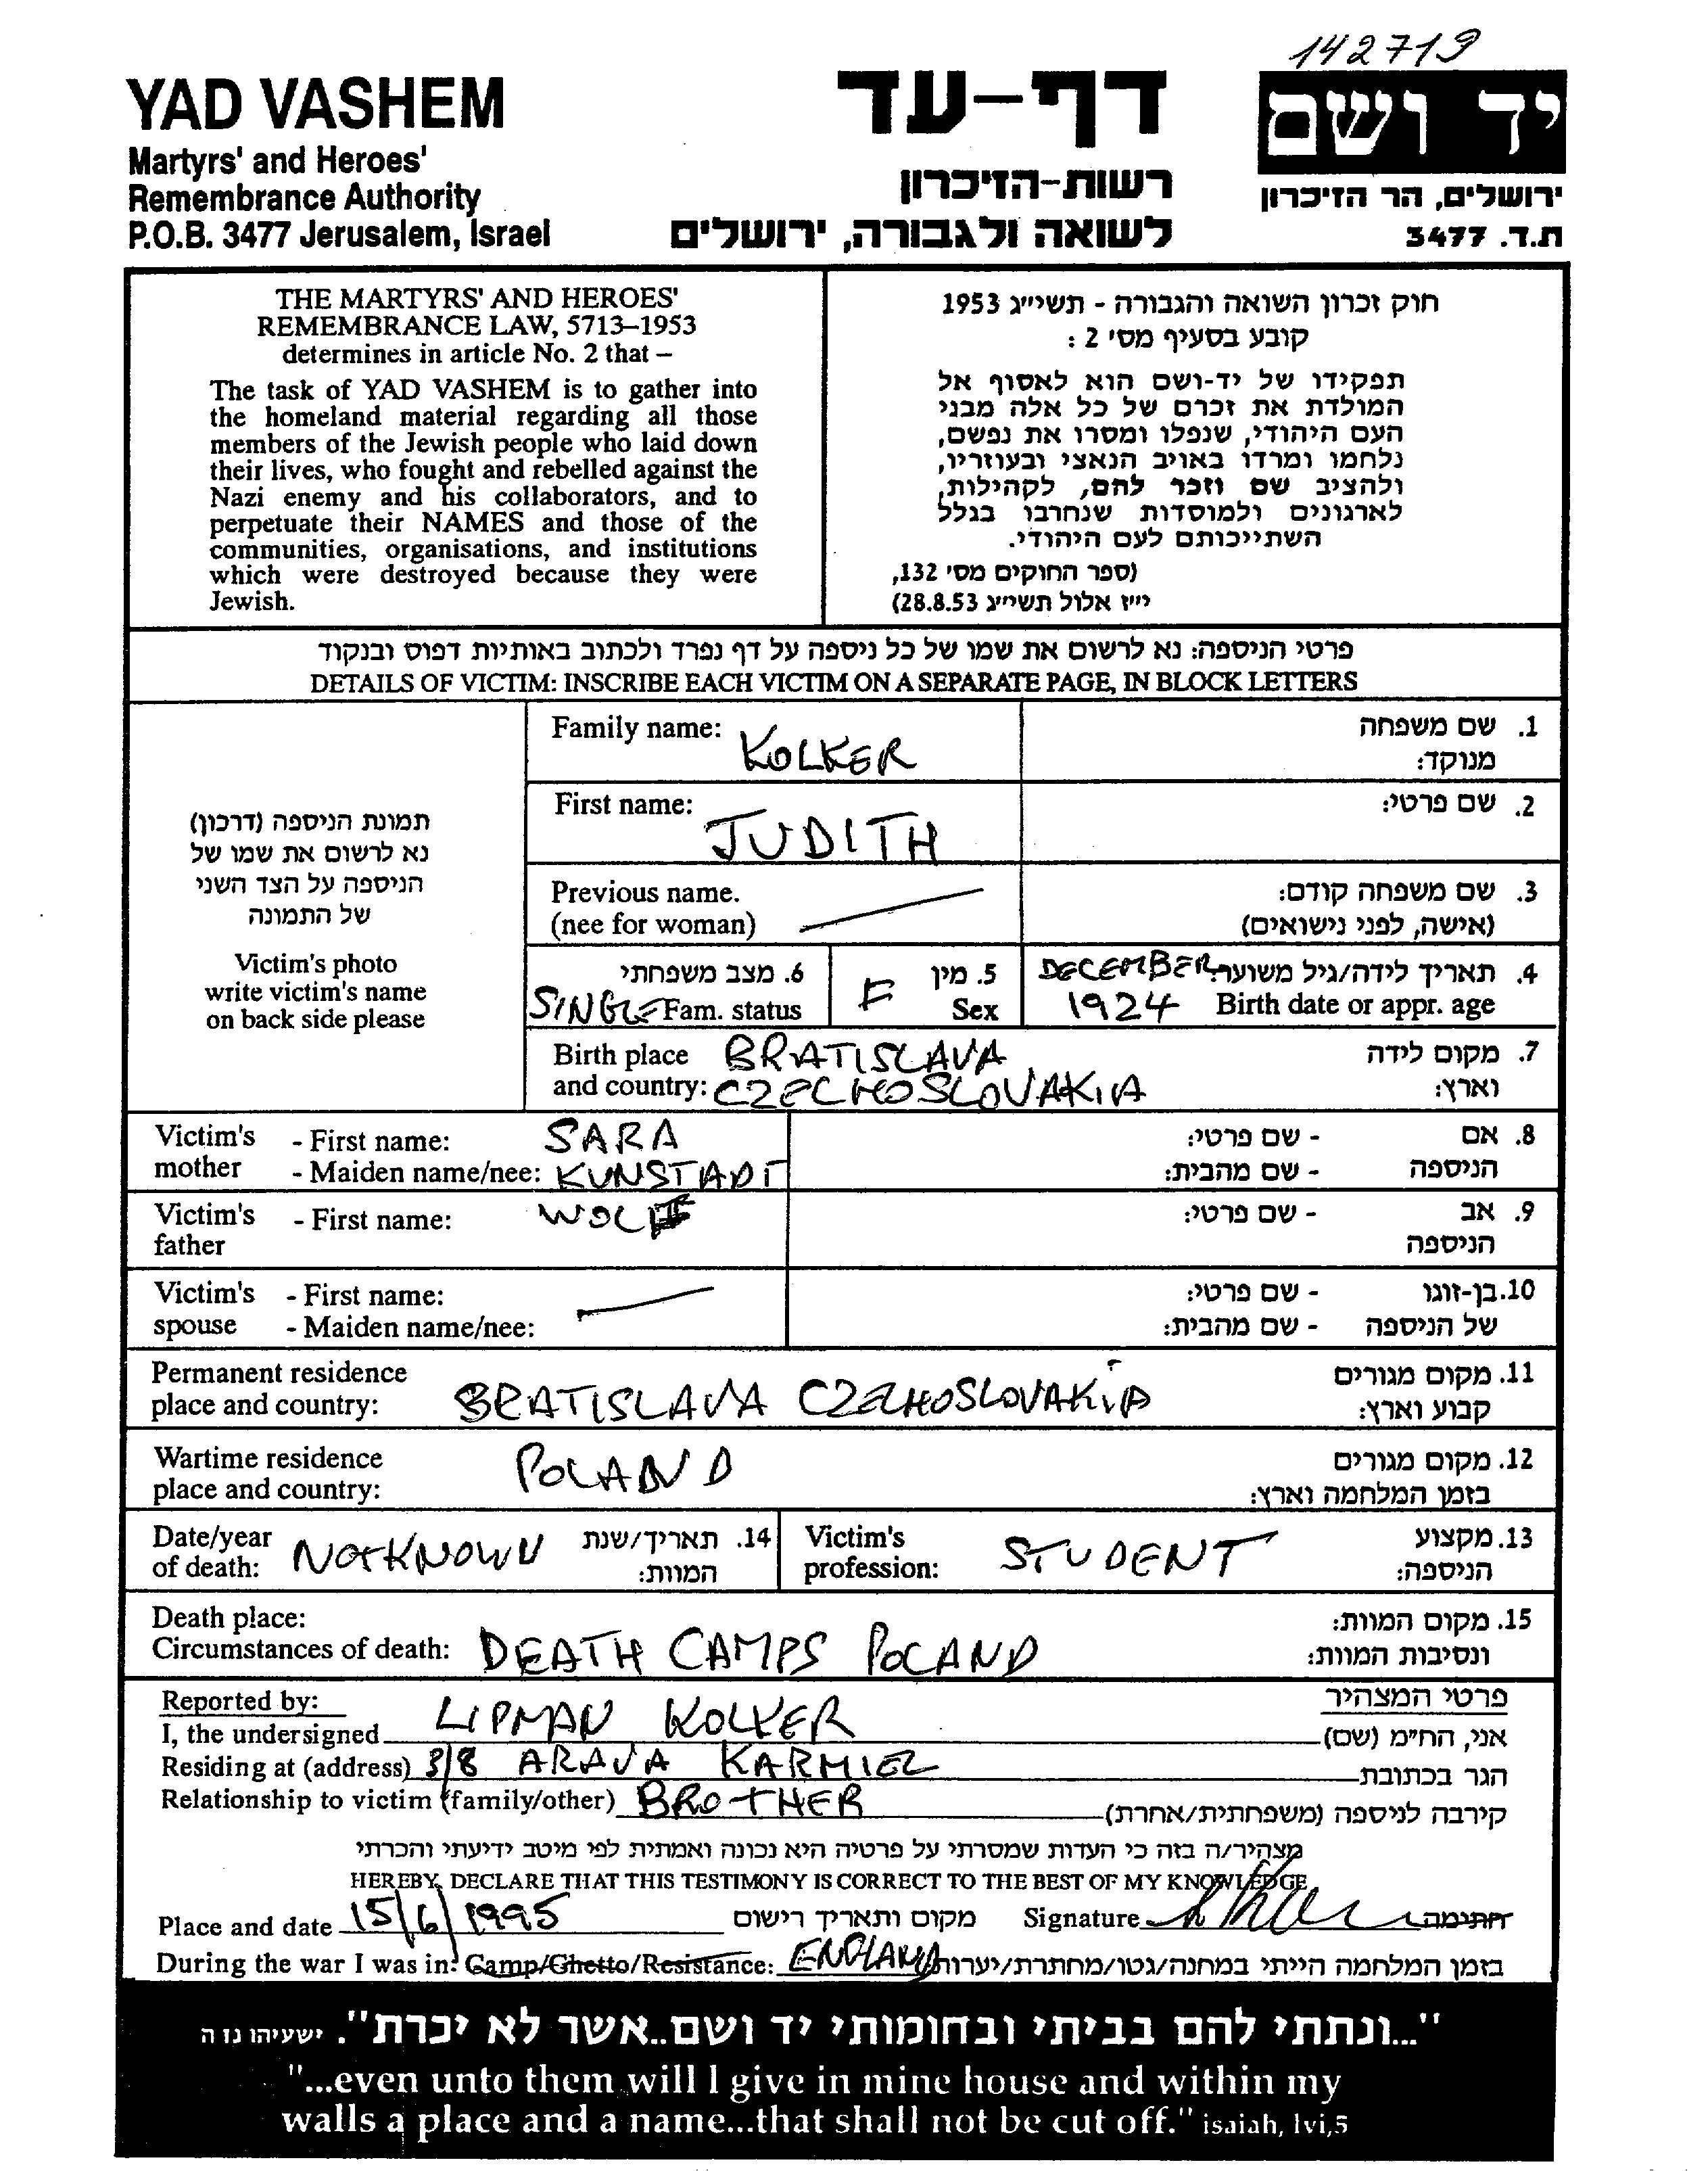 142719
YAD VASHEM
Martyrs' and Heroes'
Remembrance Authority
P.O.B. 3477 Jerusalem, Israel
דף-עד
רשות-הזיכרון
לשואה ולגבורה, ירושלים
יד ושם
ירושלים, הר הזיכרון
ת.ד. 3477
THE MARTYRS' AND HEROES'
REMEMBRANCE LAW, 5713–1953
determines in article No. 2 that –
The task of YAD VASHEM is to gather into
the homeland material regarding all those
members of the Jewish people who laid down
their lives, who fought and rebelled against the
Nazi enemy and his collaborators, and to
perpetuate their NAMES and those of the
communities, organisations, and institutions
which were destroyed because they were
Jewish.
חוק זכרון השואה והגבורה - תשי״ג 1953
קובע בסעיף מס׳ 2 :
תפקידו של יד-ושם הוא לאסוף אל
המולדת את זכרם של כל אלה מבני
העם היהודי, שנפלו ומסרו את נפשם,
נלחמו ומרדו באויב הנאצי ובעוזריו,
ולהציב שם וזכר להם, לקהילות,
לארגונים ולמוסדות שנחרבו בגלל
השתייכותם לעם היהודי.
(ספר החוקים מס׳ 132,
י״ז אלול תשי״ג 28.8.53)
פרטי הניספה: נא לרשום את שמו של כל ניספה על דף נפרד ולכתוב באותיות דפוס ובנקוד
DETAILS OF VICTIM: INSCRIBE EACH VICTIM ON A SEPARATE PAGE, IN BLOCK LETTERS
תמונת הניספה (דרכון)
נא לרשום את שמו של
הניספה על הצד השני
של התמונה
Victim's photo
write victim's name
on back side please
Family name: KOLKER 1. שם משפחה
מנוקד:
First name: JUDITH 2. שם פרטי:
Previous name. 3. שם משפחה קודם:
(nee for woman) (אישה, לפני נישואים)
6. מצב משפחתי 5. מין DECEMBER 4. תאריך לידה/גיל משוער
SINGLE Fam. status F Sex 1924 Birth date or appr. age
Birth place BRATISLAVA 7. מקום לידה
and country: CZECHOSLOVAKIA וארץ:
Victim's - First name: SARA - שם פרטי: 8. אם
mother - Maiden name/nee: KUNSTADT - שם מהבית: הניספה
Victim's - First name: WOLF - שם פרטי: 9. אב
father הניספה
Victim's - First name: - שם פרטי: 10. בן-זוגו
spouse - Maiden name/nee: - שם מהבית: של הניספה
Permanent residence 11. מקום מגורים
place and country: BRATISLAVA CZECHOSLOVAKIA קבוע וארץ:
Wartime residence POLAND 12. מקום מגורים
place and country: בזמן המלחמה וארץ:
Date/year 14. תאריך/שנת Victim's 13. מקצוע
of death: NOT KNOWN המוות: profession: STUDENT הניספה:
Death place: 15. מקום המוות:
Circumstances of death: DEATH CAMPS POLAND ונסיבות המוות:
Reported by: פרטי המצהיר
I, the undersigned LIPMAN KOLKER אני, הח״מ (שם)
Residing at (address) 3/8 ARAVA KARMIEL הגר בכתובת
Relationship to victim (family/other) BROTHER קירבה לניספה (משפחתית/אחרת)
מצהיר/ה בזה כי העדות שמסרתי על פרטיה היא נכונה ואמתית לפי מיטב ידיעתי והכרתי
HEREBY, DECLARE THAT THIS TESTIMONY IS CORRECT TO THE BEST OF MY KNOWLEDGE
Place and date 15/6/1995 מקום ותאריך רישום Signature חתימה
During the war I was in: Camp/Ghetto/Resistance: ENGLAND בזמן המלחמה הייתי במחנה/גטו/מחתרת/יערות
"...ונתתי להם בביתי ובחומותי יד ושם..אשר לא יכרת". ישעיהו נו ה
"...even unto them will I give in mine house and within my
walls a place and a name...that shall not be cut off." isaiah, lvi,5